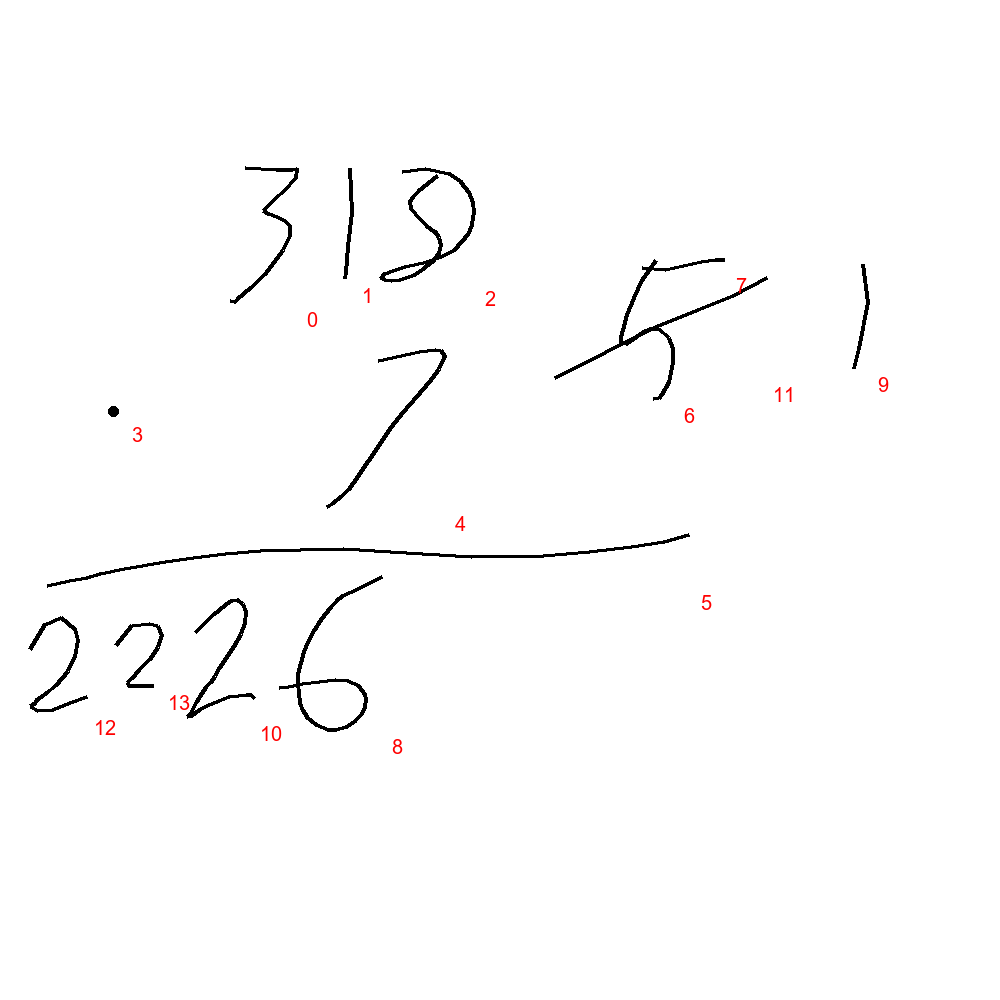 318
0 1 2
5 1
7
6 11 9
· 7
3
4
5
2226
12 13 10 8